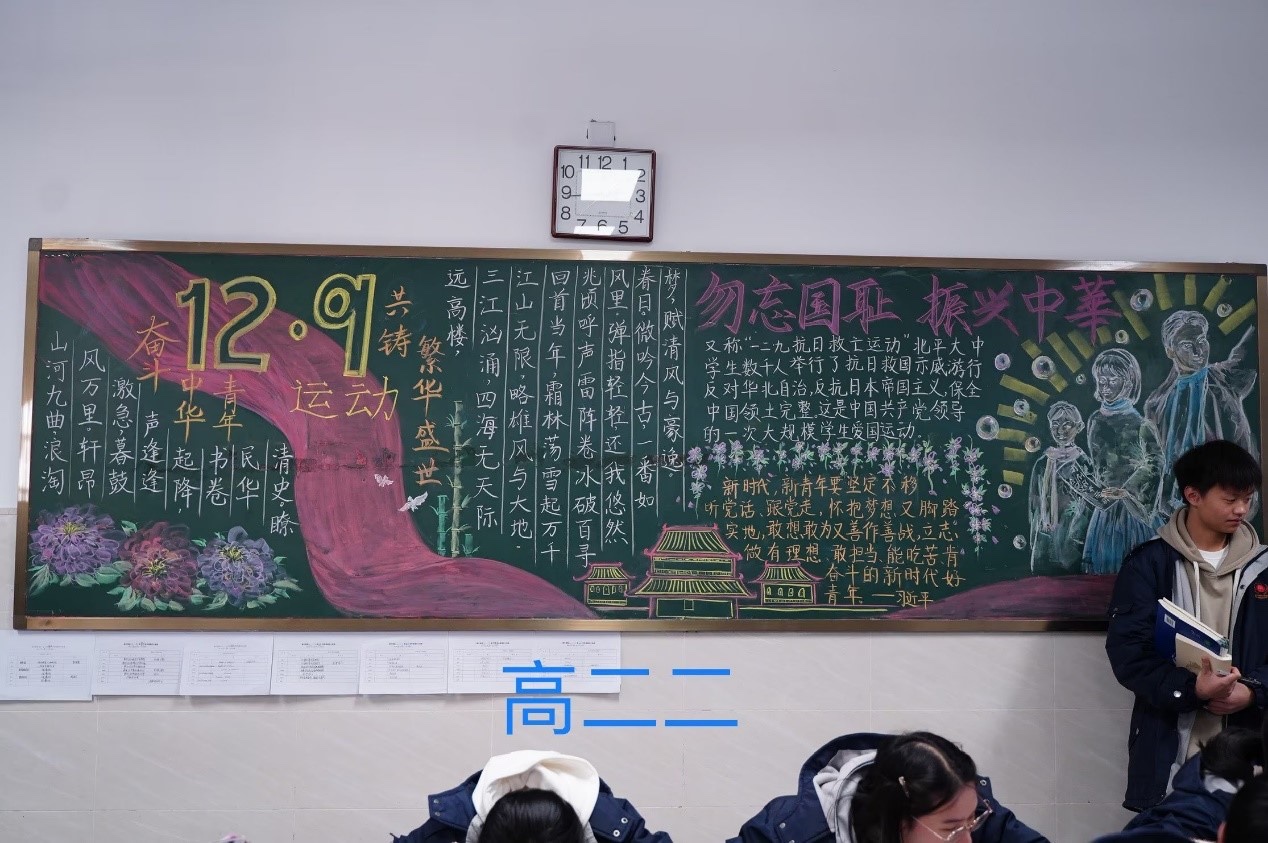 11 12 1
10 2
9 3
8 4
7 6 5
12·9
运动
奋斗
中华
青年
共铸
繁华盛世
山河九曲浪淘
风万里轩昂
激急,暮鼓
声逢逢
起降,
书卷
民华
清史,瞭
远高楼,
三江汹涌,四海无天际
江山无限略雄风与大地.
回首当年,霜林荡雪起万千
兆顷呼声雷阵卷冰破百寻
风里,弹指轻轻还我悠然,
春日,微吟今古一番如
梦,赋清风与豪逸。
勿忘国耻 振兴中華
又称“一二九抗日救亡运动”北平大中
学生数千人举行了抗日救国示威游行
反对华北自治,反抗日本帝国主义,保全
中国领土完整,这是中国共产党领导
的一次大规模学生爱国运动.
新时代新青年要坚定不移
听党话、跟党走,怀抱梦想又脚踏
实地,敢想敢为又善作善成,立志
做有理想、敢担当、能吃苦、肯
奋斗的新时代好
青年.——习近平
高二二